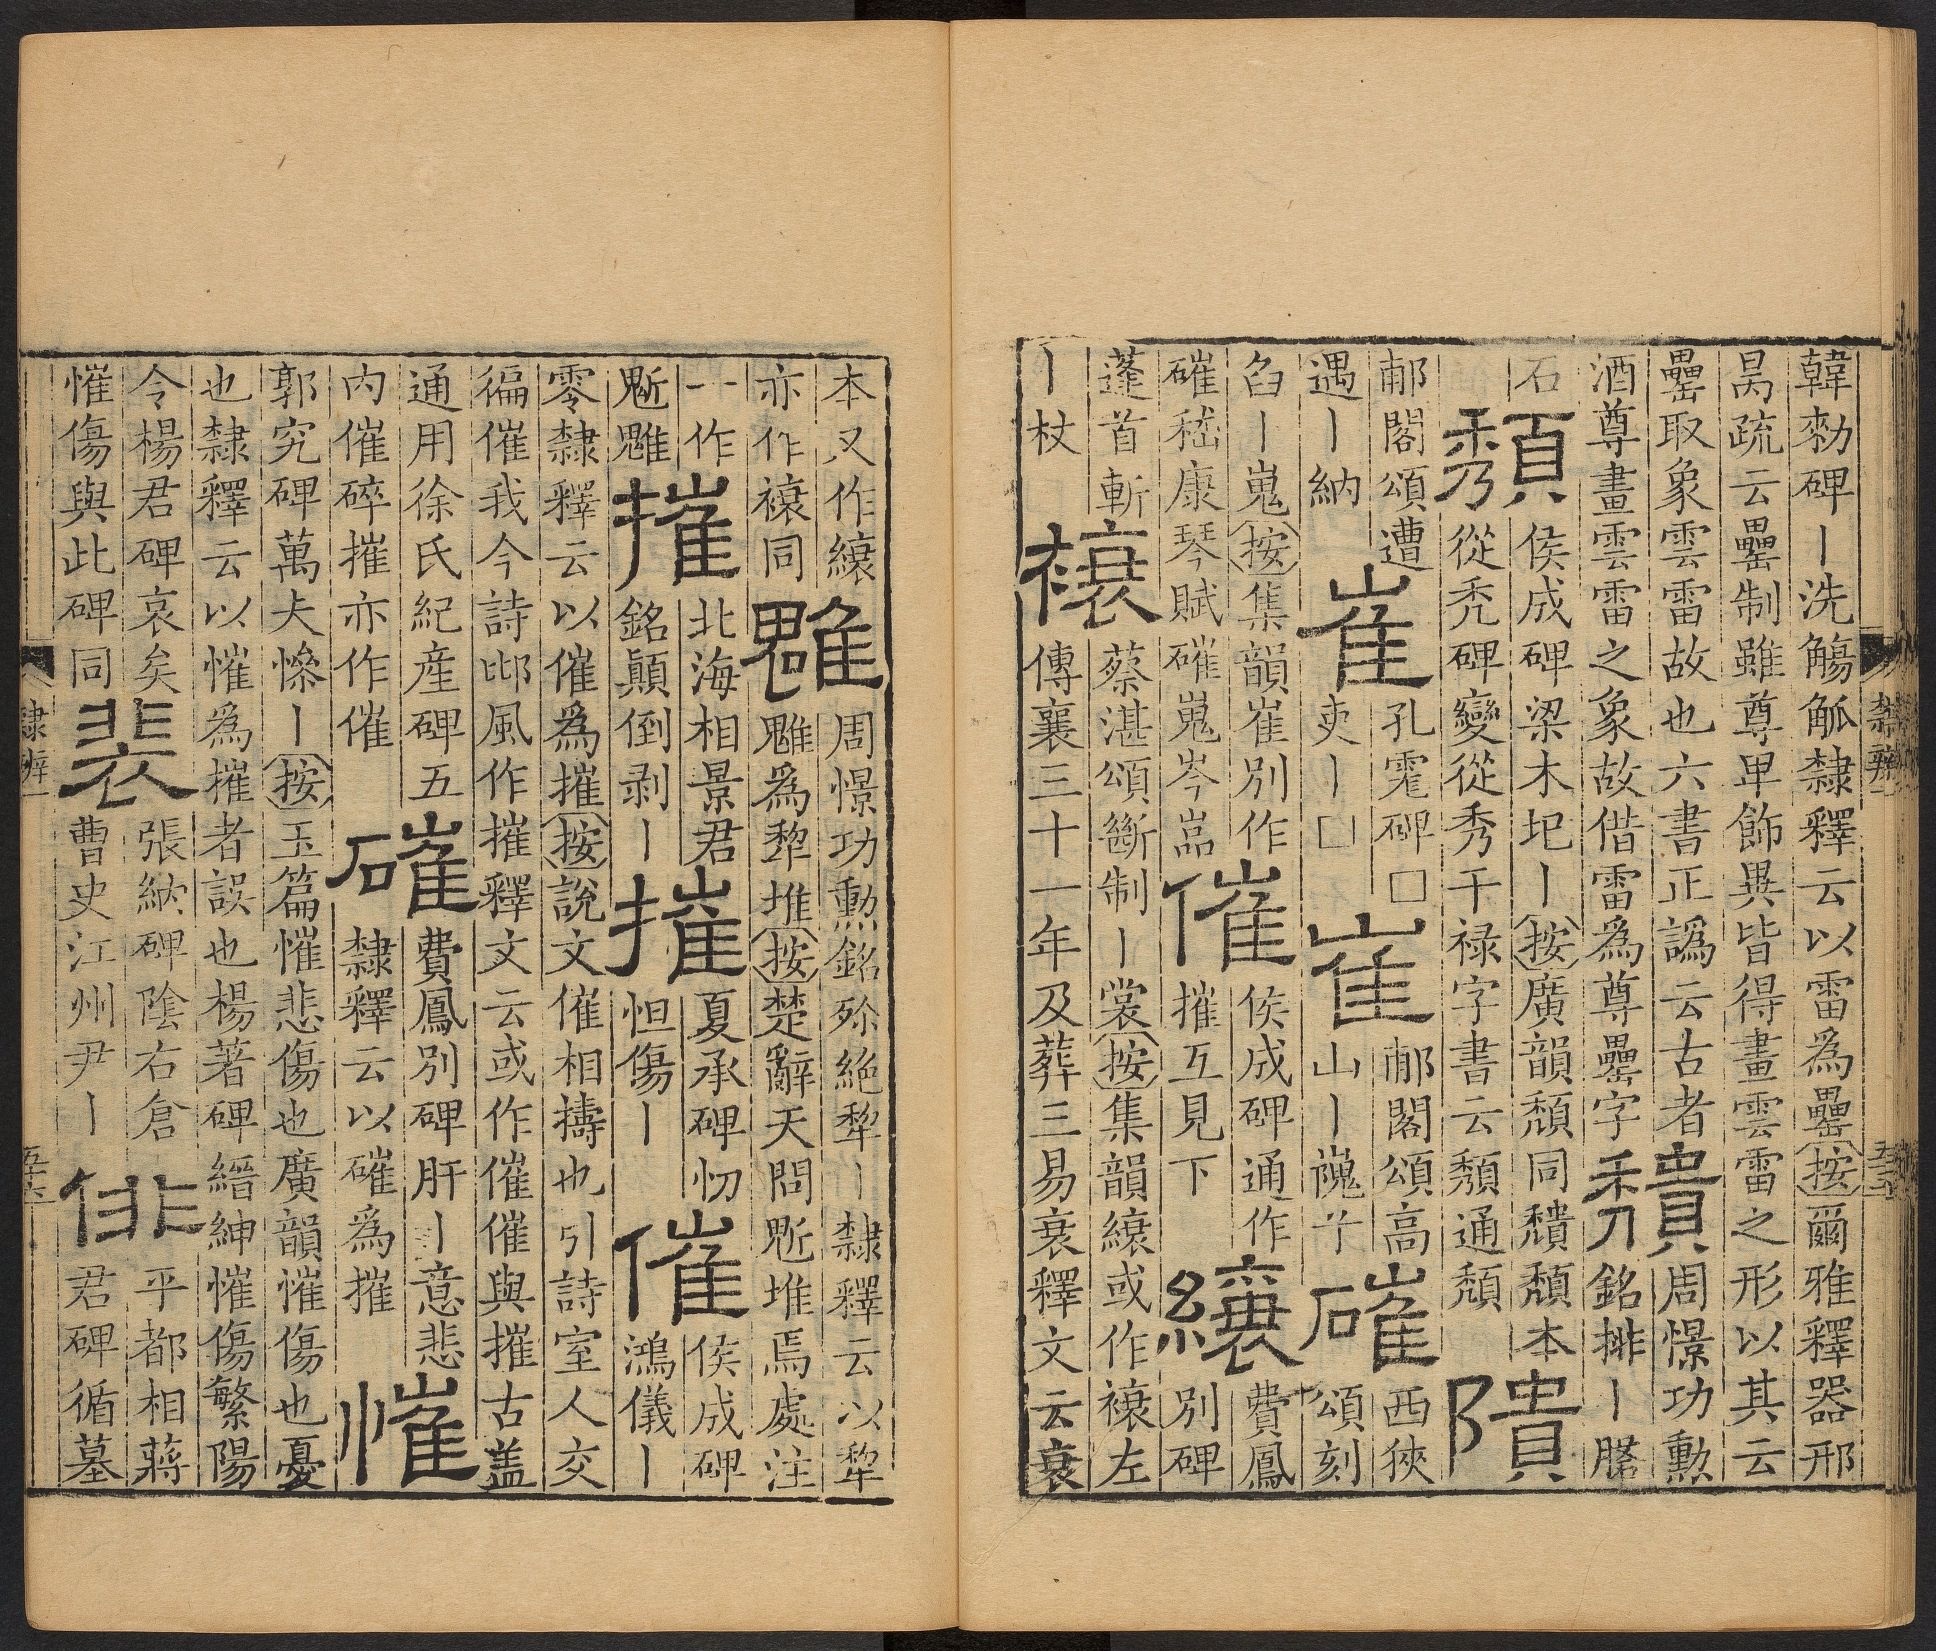 韓勑碑丨洗觴觚隸釋云以雷為罍按爾雅釋器邢
昺疏云罍制雖尊卑飾異皆得畫雲雷之形以其云
罍取象雲雷故也六書正譌云古者
酒尊畫雲雷之象故借雷為尊罍字
穨
周憬功勳
銘排丨
石
頹
侯成碑梁木圯丨按廣韻頹同穨頹本
從禿碑變從秀干祿字書云頽通頹
隤
郙閣頌遭
遇丨納
崔
孔宙碑□
吏丨□
崔
郙閣頌高
山丨巍兮
磪
西狹
頌刻
臽丨嵬按集韻崔別作
磪嵇康琴賦磪嵬岑嵓
催
侯成碑通作
摧互見下
縗
費鳳
別碑
蓬首斬
丨杖
䙑
蔡湛頌斷制丨裳按集韻縗或作䙑左
傳襄三十一年及葬三易衰釋文云衰
隸辨一
五十五
本又作縗
亦作䙑同
魋
周憬功勳銘殄絶犂丨隸釋云以犂
魋為犂堆按楚辭天問鬿堆焉處注
一作
鬿魋
摧
北海相景君
銘顛倒剥丨
摧
夏承碑忉
怛傷丨
催
侯成碑
鴻儀丨
零隸釋云以催為摧按說文催相擣也引詩室人交
徧催我今詩邶風作摧釋文云或作催催與摧古盖
通用徐氏紀產碑五
内催碎摧亦作催
磪
費鳳別碑肝丨意悲
隸釋云以磪為摧
慛
郭究碑萬夫慘丨按玉篇慛悲傷也廣韻慛傷也憂
也隸釋云以慛為摧者誤也楊著碑縉紳慛傷繁陽
令楊君碑哀矣
慛傷與此碑同
裴
張納碑陰右倉
曹史江州尹丨
俳
平都相蔣
君碑循墓
隸辨一
五十六